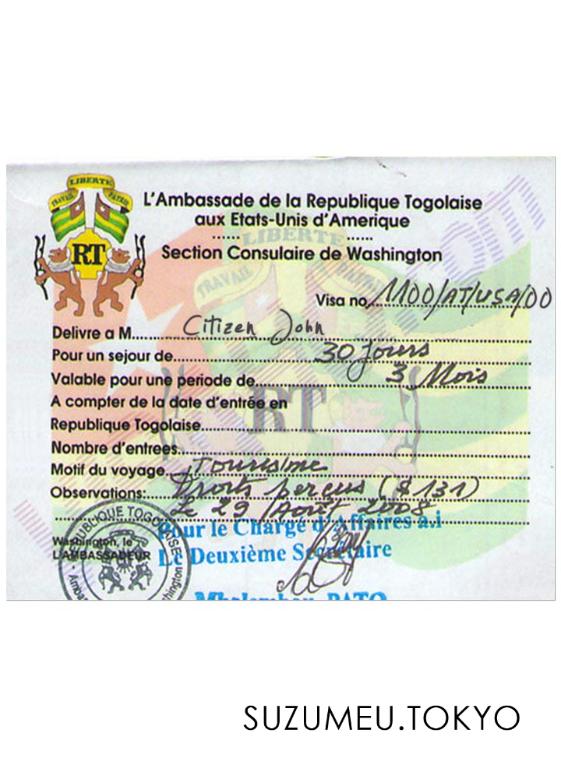 LIBERTE
TRAVAIL PATRIE
RT
L'Ambassade de la Republique Togolaise
aux Etats-Unis d'Amerique
LIBERTE
Section Consulaire de Washington
TRAVAIL
Visa no 1100/AT/USA/00
Delivre a M. Citizen John
Pour un sejour de 30 Jours
Valable pour une periode de 3 Mois
A compter de la date d'entrée en
RT
Republique Togolaise
Nombre d'entrees
Motif du voyage Tourisme
Observations: Droits percus ($ 131)
Le 29 Août 2008
REPUBLIQUE TOGOLAISE
Pour le Chargé d'Affaires a.i
Washington, le
L'AMBASSADEUR
Le Deuxième Secrétaire
PATO
.com
SUZUMEU.TOKYO